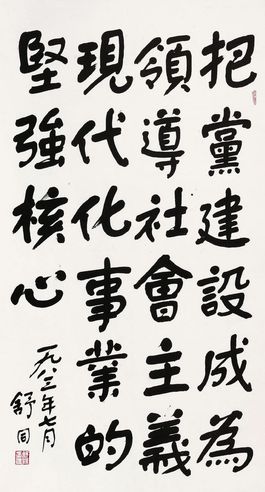 把黨建設成為
領導社會主義
現代化事業的
堅強核心
一九八三年七月
舒同